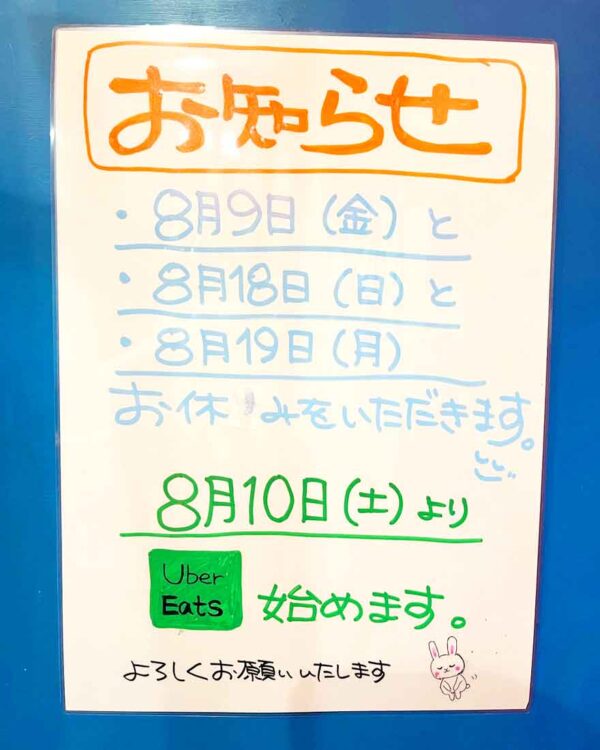 お知らせ
・8月9日(金)と
・8月18日(日)と
・8月19日(月)
お休みをいただきます。
8月10日(土)より
Uber
Eats
始めます。
よろしくお願いいたします